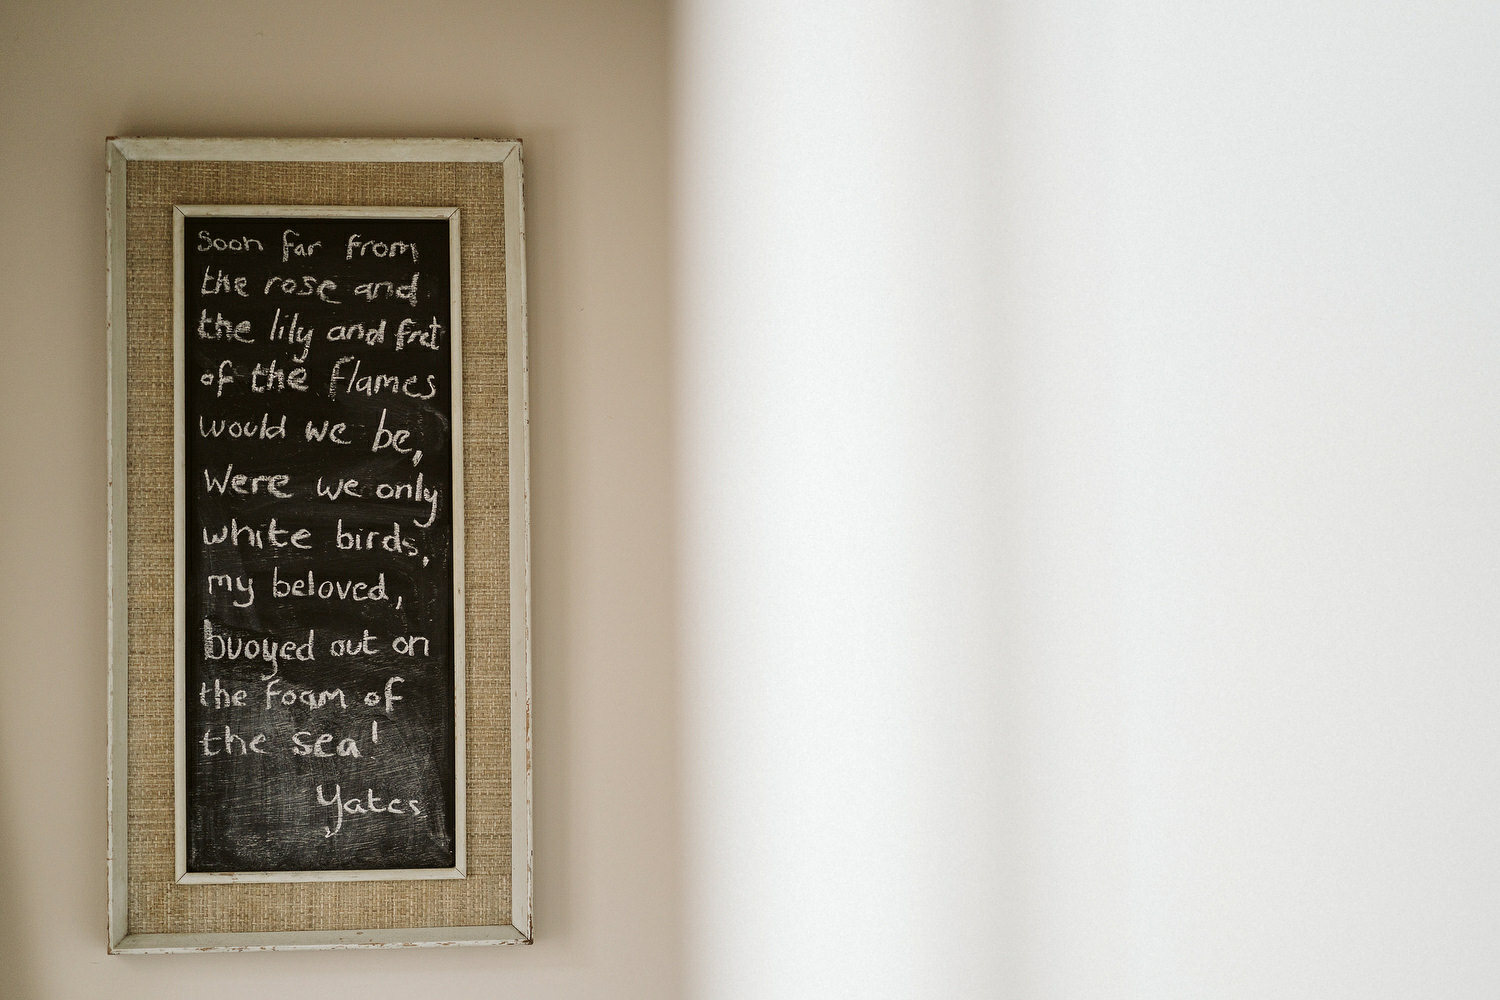 Soon far from
the rose and
the lily and fret
of the flames
would we be,
Were we only
white birds,
my beloved,
buoyed out on
the foam of
the sea!
Yates